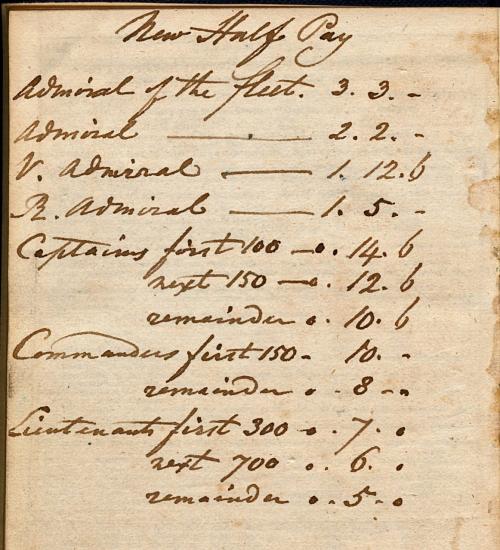 New Half Pay
Admiral of the fleet. 3. 3. -
Admiral —— 2. 2. -
V. Admiral —— 1. 12. 6
R. Admiral —— 1. 5. -
Captains first 100 — 0. 14. 6
next 150 — 0. 12. 6
remainder 0. 10. 6
Commanders first 150 - 10. -
remainder 0 - 8 --
Lieutenants first 300 - 0. 7. 0
next 700 0. 6. 0
remainder 0. 5. 0